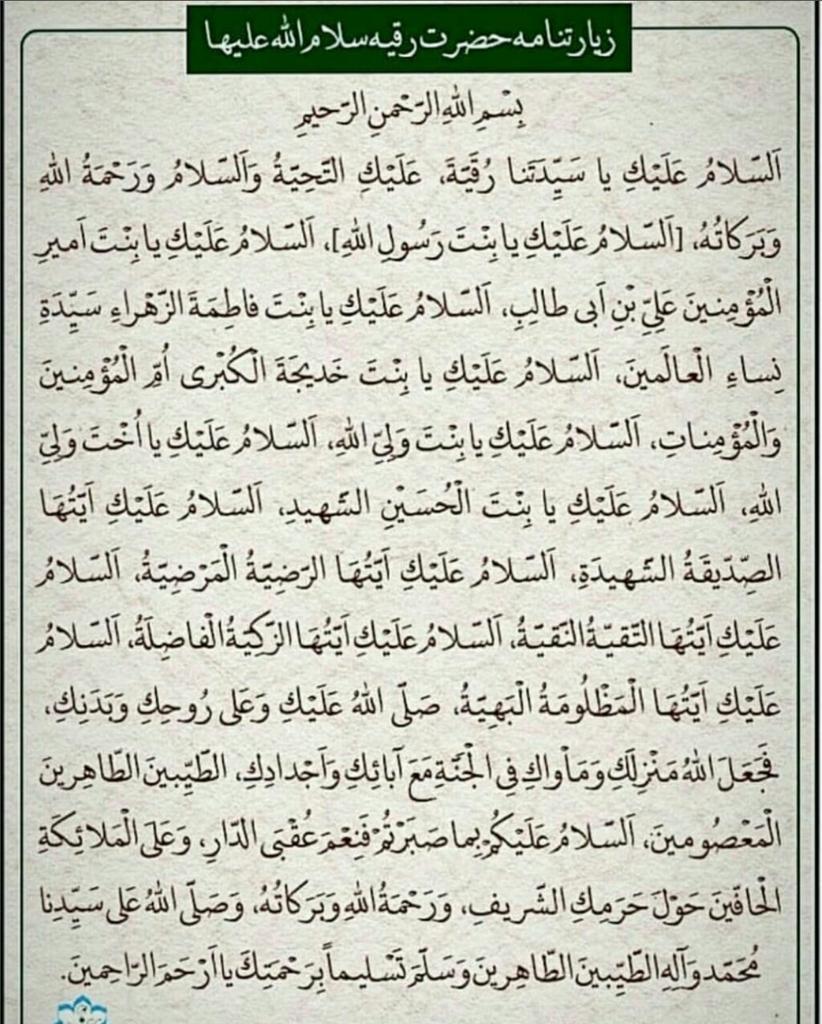 زیارتنامه حضرت رقیه سلام الله علیها
بِسْمِ اللهِ الرَّحْمنِ الرَّحیمِ
اَلسَّلامُ عَلَیْكِ یا سَیِّدَتَنا رُقَیَّةَ، عَلَیْكِ التَّحِیَّةُ وَاَلسَّلامُ وَرَحْمَةُ اللهِ
وَبَرَكاتُهُ، [اَلسَّلامُ عَلَیْكِ یا بِنْتَ رَسُولِ اللهِ]، اَلسَّلامُ عَلَیْكِ یا بِنْتَ اَمیرِ
الْمُؤْمِنینَ عَلِیِّ بْنِ اَبی طالِبٍ، اَلسَّلامُ عَلَیْكِ یا بِنْتَ فاطِمَةَ الزَّهْراءِ سَیِّدَةِ
نِساءِ الْعالَمینَ، اَلسَّلامُ عَلَیْكِ یا بِنْتَ خَدیجَةَ الْكُبْرى اُمِّ الْمُؤْمِنینَ
وَالْمُؤْمِناتِ، اَلسَّلامُ عَلَیْكِ یا بِنْتَ وَلِیِّ اللهِ، اَلسَّلامُ عَلَیْكِ یا اُخْتَ وَلِیِّ
اللهِ، اَلسَّلامُ عَلَیْكِ یا بِنْتَ الْحُسَیْنِ الشَّهیدِ، اَلسَّلامُ عَلَیْكِ اَیَّتُهَا
الصِّدّیقَةُ الشَّهیدَةِ، اَلسَّلامُ عَلَیْكِ اَیَّتُهَا الرَّضِیَّةُ الْمَرْضِیَّةُ، اَلسَّلامُ
عَلَیْكِ اَیَّتُهَا التَّقیَّةُ النَّقیَّةُ، اَلسَّلامُ عَلَیْكِ اَیَّتُهَا الزَّكِیَّةُ الْفاضِلَةُ، اَلسَّلامُ
عَلَیْكِ اَیَّتُهَا الْمَظْلُومَةُ الْبَهِیَّةُ، صَلَّى اللهُ عَلَیْكِ وَعَلى رُوحِكِ وَبَدَنِكِ،
فَجَعَلَ اللهُ مَنْزِلَكِ وَمَاْواكِ فِی الْجَنَّةِ مَعَ آبائِكِ وَاَجْدادِكِ، الطَّیِّبینَ الطّاهِرینَ
الْمَعْصُومینَ، اَلسَّلامُ عَلَیْكُمْ بِما صَبَرْتُمْ فَنِعْمَ عُقْبَى الدّارِ، وَعَلَى الْمَلائِكَةِ
الْحافّینَ حَوْلَ حَرَمِكِ الشَّریفِ، وَرَحْمَةُ اللهِ وَبَرَكاتُهُ، وَصَلَّى اللهُ عَلى سَیِّدِنا
مُحَمَّد وَآلِهِ الطَّیِّبینَ الطّاهِرینَ وَسَلَّمَ تَسْلیماً بِرَحْمَتِكَ یا اَرْحَمَ الرّاحِمینَ.